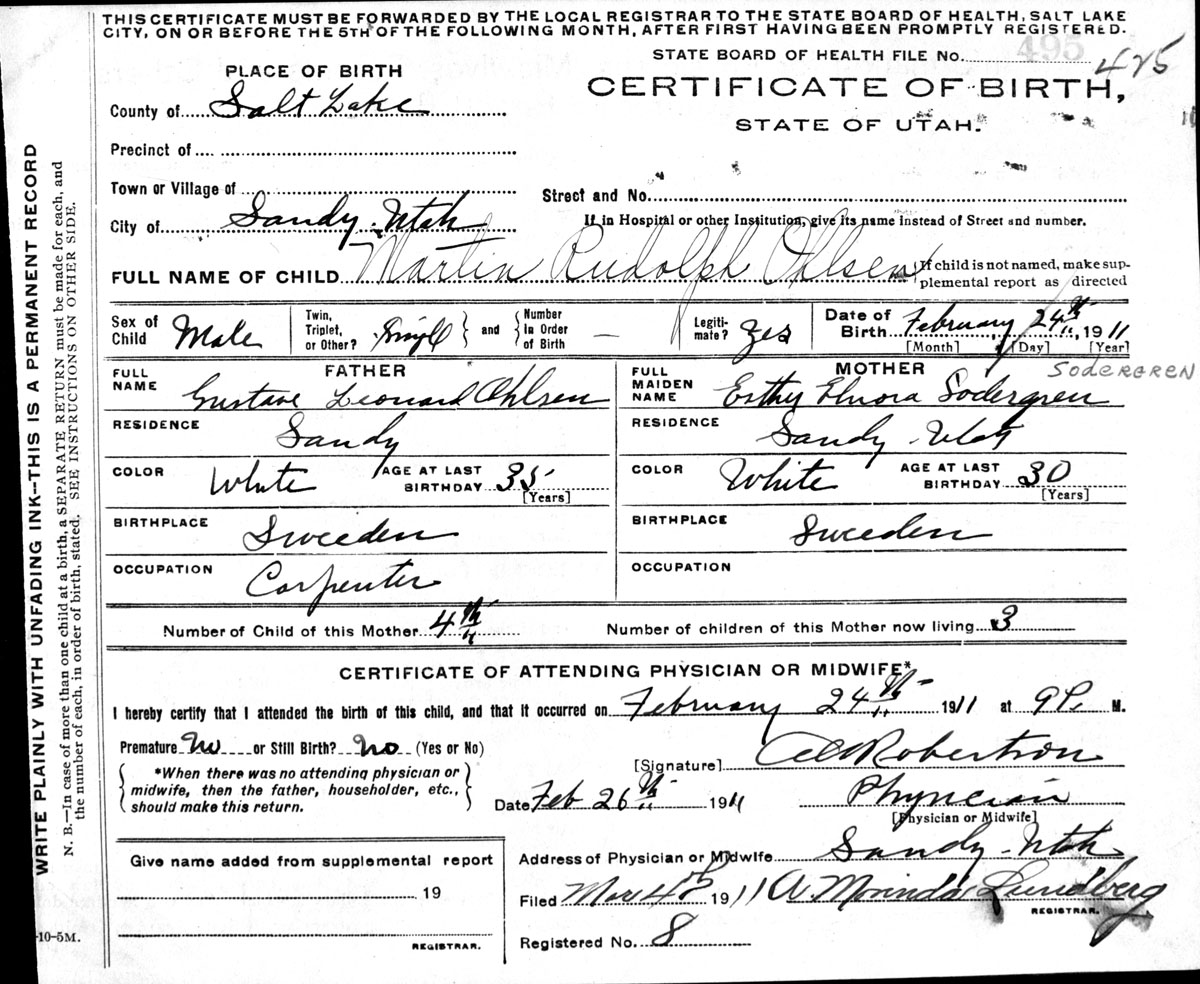 THIS CERTIFICATE MUST BE FORWARDED BY THE LOCAL REGISTRAR TO THE STATE BOARD OF HEALTH, SALT LAKE
CITY, ON OR BEFORE THE 5TH OF THE FOLLOWING MONTH, AFTER FIRST HAVING BEEN PROMPTLY REGISTERED.
STATE BOARD OF HEALTH FILE No. 495 425
PLACE OF BIRTH
CERTIFICATE OF BIRTH,
County of Salt Lake
STATE OF UTAH.
Precinct of
Town or Village of
Street and No.
City of Sandy Utah
If in Hospital or other Institution, give its name instead of Street and number.
FULL NAME OF CHILD Martin Rudolph Ohlsen
If child is not named, make sup-
plemental report as directed
Sex of Child Male
Twin, Triplet, or Other? Singl and Number In Order of Birth —
Legiti-mate? Yes
Date of Birth February 24th, 1911
[Month] [Day] [Year]
FATHER
FULL NAME Gustave Leonard Ohlsen
RESIDENCE Sandy
COLOR White AGE AT LAST BIRTHDAY 35
[Years]
BIRTHPLACE Sweeden
OCCUPATION Carpenter
MOTHER SODERGREN
FULL MAIDEN NAME Esthy Elnora Sodergren
RESIDENCE Sandy Utah
COLOR White AGE AT LAST BIRTHDAY 30
[Years]
BIRTHPLACE Sweeden
OCCUPATION
Number of Child of this Mother 4th
Number of children of this Mother now living 3
CERTIFICATE OF ATTENDING PHYSICIAN OR MIDWIFE*
I hereby certify that I attended the birth of this child, and that it occurred on February 24th 1911 at 9 P. M.
Premature No or Still Birth? No (Yes or No)
*When there was no attending physician or
midwife, then the father, householder, etc.,
should make this return.
[Signature] Robertson
Date Feb 26th 1911 Physician
[Physician or Midwife]
Give name added from supplemental report
19
REGISTRAR.
Address of Physician or Midwife Sandy Utah
Filed Mar 4th 1911 A Morinda Lundberg
REGISTRAR.
Registered No. 8
-10-5M.
WRITE PLAINLY WITH UNFADING INK—THIS IS A PERMANENT RECORD
N. B.—In case of more than one child at a birth, a SEPARATE RETURN must be made for each, and
the number of each, in order of birth, stated. SEE INSTRUCTIONS ON OTHER SIDE.